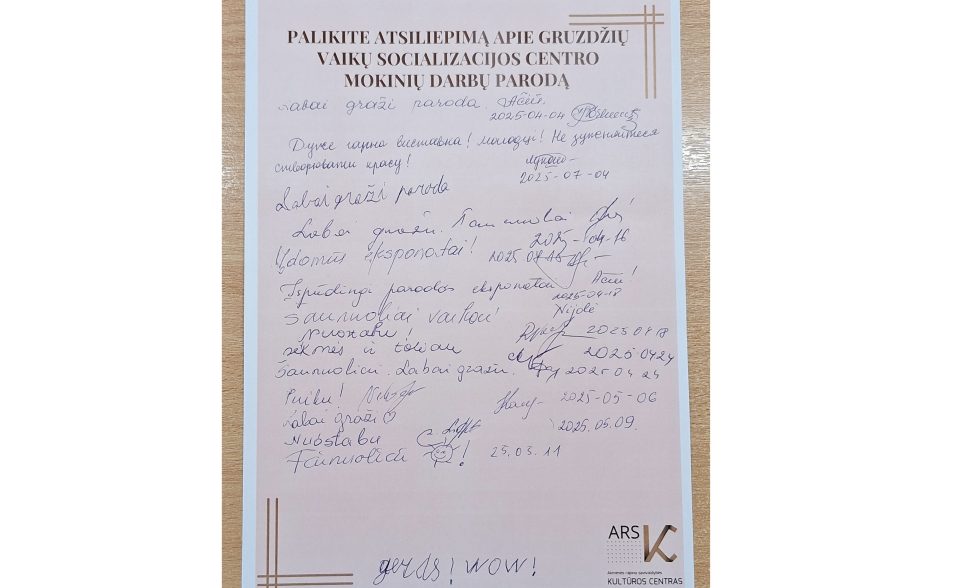 PALIKITE ATSILIEPIMĄ APIE GRUZDŽIŲ
VAIKŲ SOCIALIZACIJOS CENTRO
MOKINIŲ DARBŲ PARODĄ
Labai graži paroda. Ačiū.
2025-04-04
Дуже гарна виставка! молодці! Не зупиняйтеся
створювати красу!
2025-07-04
Labai graži paroda
Labai gražu. Šaunuoliai
2025-04-16
Įdomūs eksponatai! 2025 04 16
Įspūdingi parodos eksponatai Ačiū!
2025-04-18
Nijolė
Šaunuoliai vaikai!
Nuostabu! 2025 04 18
sėkmės ir toliau 2025 04 24
Šaunuoliai. Labai gražu. 2025 04 24
Puiku! 2025-05-06
Labai graži ♡ 2025.05.09.
Nuostabu
Šaunuoliai ! 25.05.11
gerds! WOW!
ARS
KC
KULTŪROS CENTRAS